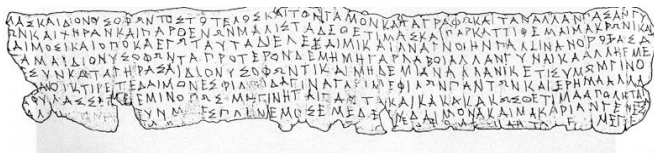 ΜΑΣΚΑΙΔΙΟΝΥΣΟΦΩΝΤΟΣΤΟΤΕΛΟΣΚΑΙΤΟΝΓΑΜΟΝΚΑΤΑΓΡΑΦΩΚΑΙΤΑΝΑΛΛΑΝΠΑΣΑΝΓΥ
ΩΝΚΑΙΧΗΡΑΝΚΑΙΠΑΡΘΕΝΩΝΜΑΛΙΣΤΑΔΕΘΕΤΙΜΑΣΚΑΙΠΑΡΚΑΤΤΙΘΕΜΑΙΜΑΚΡΩΝΙ
ΔΑΙΜΟΣΙΚΑΙΟΠΟΚΑΕΓΩΤΑΥΤΑΔΙΕΛΕΞΑΙΜΙΚΑΙΑΝΑΓΝΟΙΗΝΠΑΛΙΝΑΝΟΡΟΞΑΣΑ
ΓΑΜΑΙΔΙΟΝΥΣΟΦΩΝΤΑΠΡΟΤΕΡΟΝΔΕΜΗΜΗΓΑΡΛΑΒΟΙΑΛΛΑΝΓΥΝΑΙΚΑΑΛΛΗΕΜΕ
ΕΣΥΝΚΑΤΑΓΗΡΑΣΑΙΔΙΟΝΥΣΟΦΩΝΤΙΚΑΙΜΗΔΕΜΙΑΝΑΛΛΑΝΙΚΕΤΙΣΥΜΩΓΙΝΟ
ΑΝΟΙΚΤΙΡΕΤΕΔΑΙΜΟΝΕΣΦΙΛΟΙΔΑΓΙΝΑΓΑΡΙΜΕΦΙΛΩΝΠΑΝΤΩΝΚΑΙΕΡΗΜΑΑΛΛΑ
ΦΥΛΑΣΣΕΤΕΕΜΙΝΟΠΩΣΜΗΓΙΝΗΤΑΙΤΑΥΤΑΚΑΙΚΑΚΑΚΑΚΩΣΘΕΤΙΜΑΑΠΟΛΗΤΑΙ
ΥΝΜΕΣΠΛΗΝΕΜΟΣΕΜΕΔΕΕΥΔΑΙΜΟΝΑΚΑΙΜΑΚΑΡΙΑΝΓΕΝΕΣ
ΜΕΓΕ